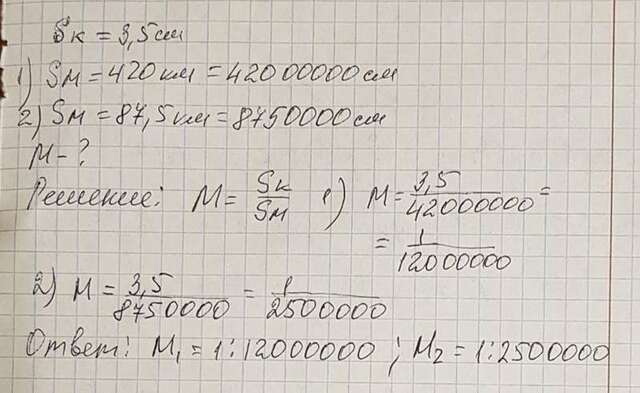 Sк = 3,5 см
1) Sм = 420 км = 42000000 см
2) Sм = 87,5 км = 8750000 см
М - ?
Решение: М = Sк/Sм 1) М = 3,5/42000000 =
= 1/12000000
2) М = 3,5/8750000 = 1/2500000
Ответ: М₁ = 1:12000000; М₂ = 1:2500000